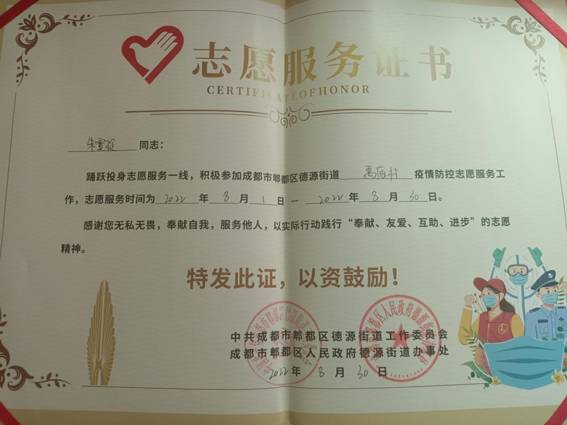 志愿服务证书
CERTIFICATEOFHONOR
同志：
踊跃投身志愿服务一线，积极参加成都市郫都区德源街道 禹庙村 疫情防控志愿服务工
作，志愿服务时间为 2022 年 8 月 1 日 — 2022 年 8 月 30 日。
感谢您无私无畏，奉献自我，服务他人，以实际行动践行“奉献、友爱、互助、进步”的志愿
精神。
特发此证，以资鼓励！
中共成都市郫都区德源街道工作委员会
成都市郫都区人民政府德源街道办事处
2022 年 8 月 30 日